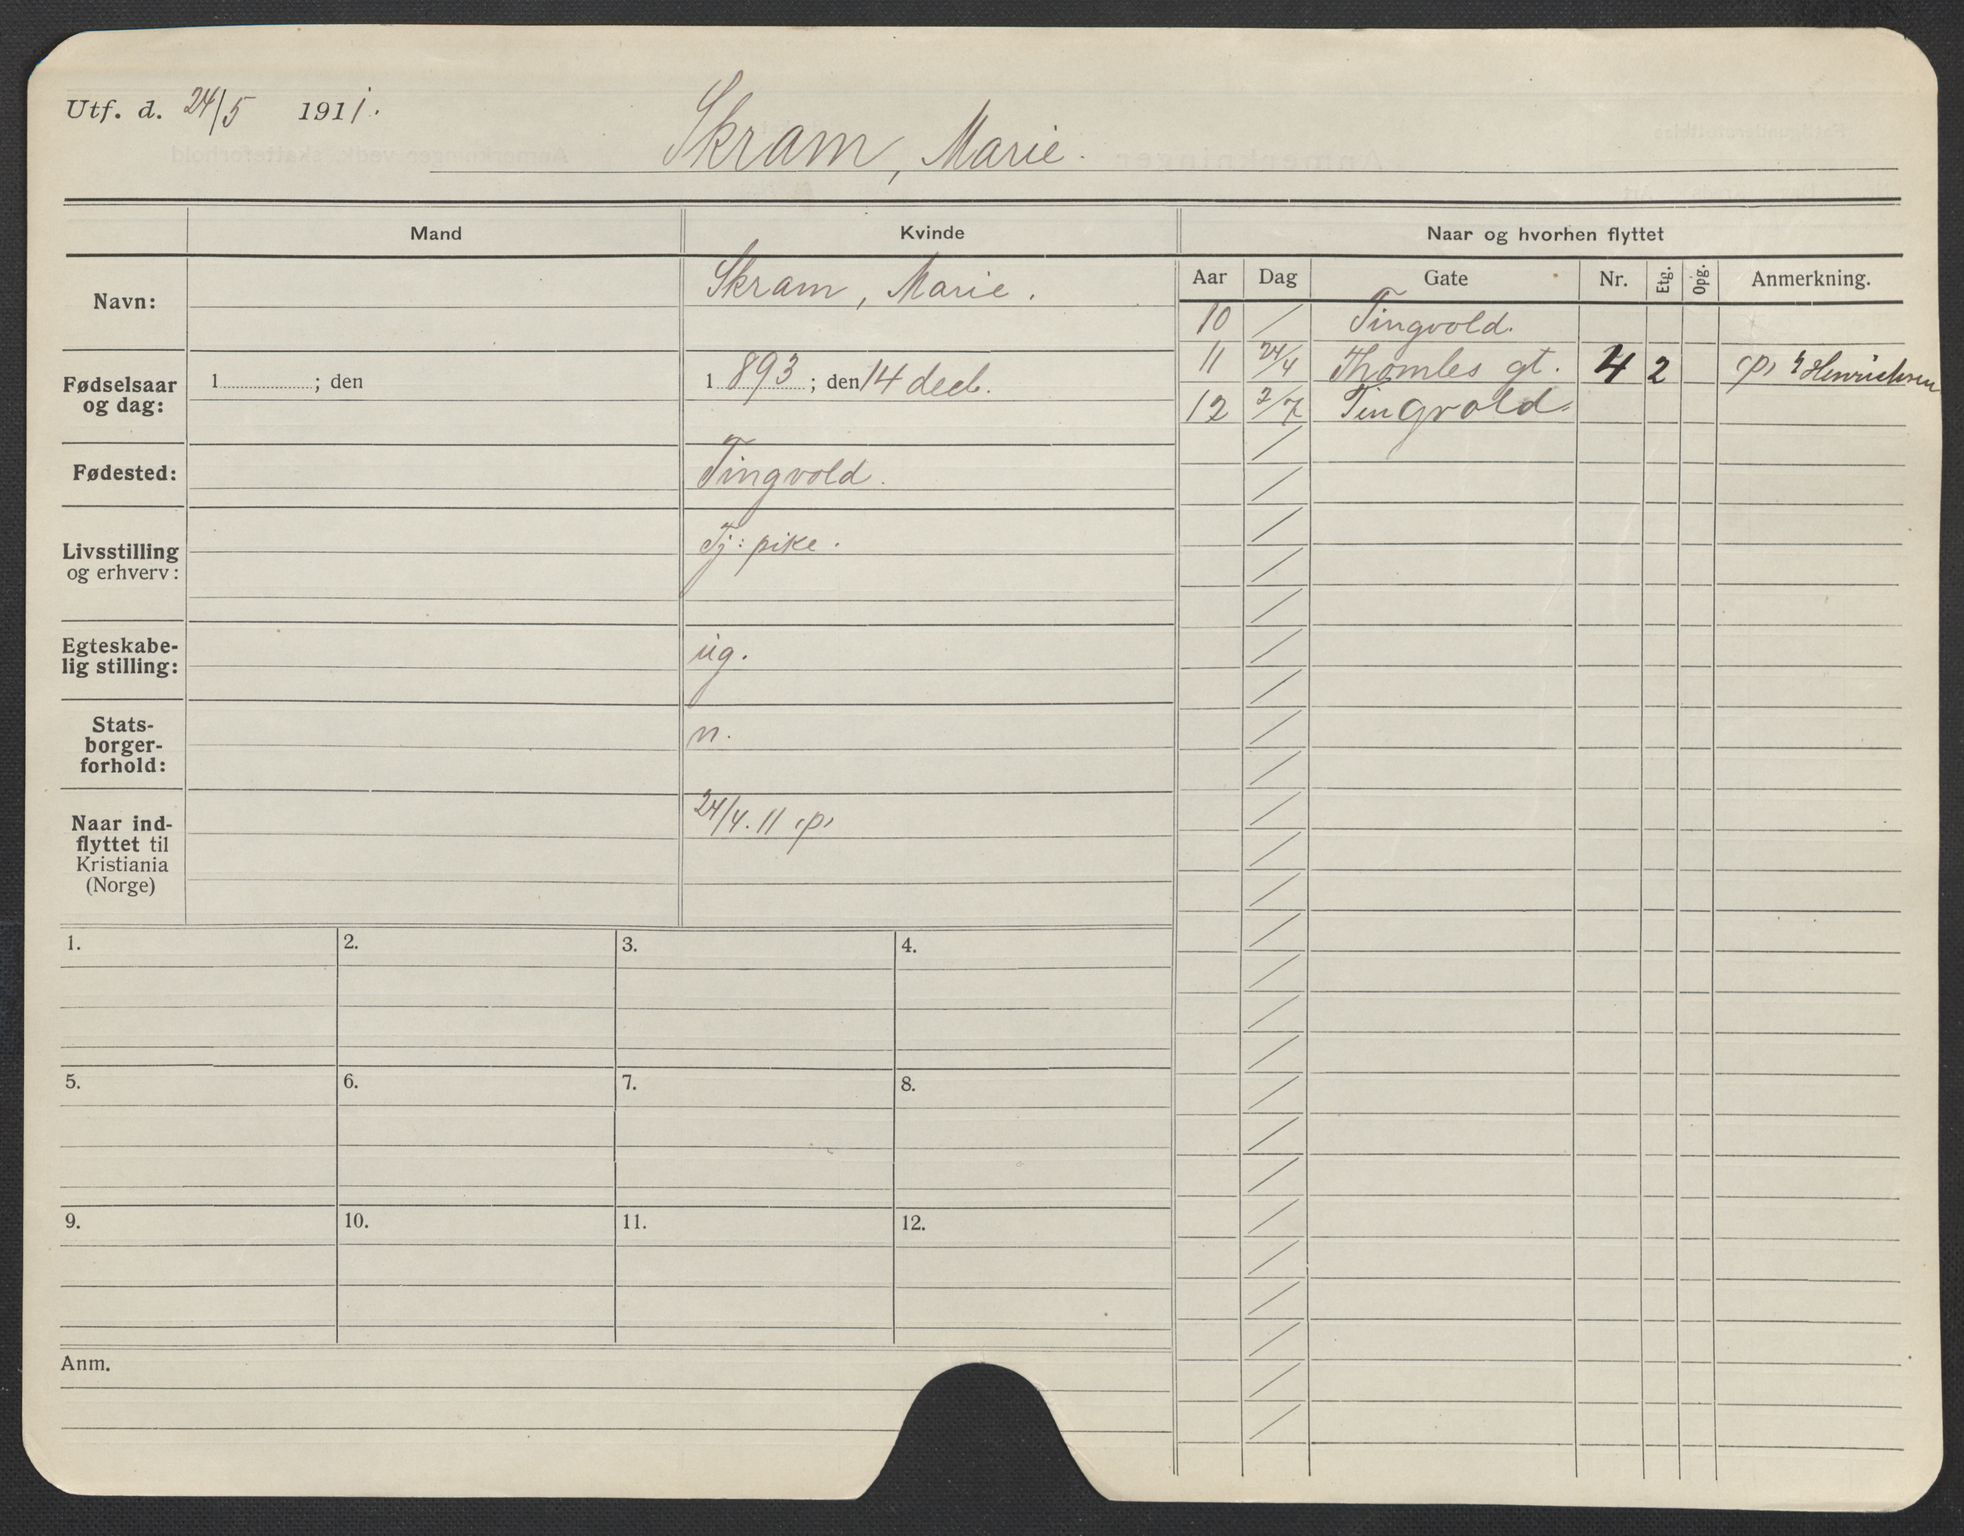 Utf. d. 24/5 1911.
Skram, Marie.
Mand Kvinde Naar og hvorhen flyttet
Aar Dag Gate Nr. Etg. Opg. Anmerkning.
Navn: Skram, Marie.
10 / Tingvold.
11 24/4 Thomles gt. 4 2 Henrichsen
12 2/7 Tingvold.
Fødselsaar
og dag: 1 ; den 1 893 ; den 14 decb.
Fødested: Tingvold.
Livsstilling
og erhverv: Tj: pike.
Egteskabe-
lig stilling: ug.
Stats-
borger-
forhold: n.
Naar ind-
flyttet til
Kristiania
(Norge) 24/4. 11 p
1. 2. 3. 4.
5. 6. 7. 8.
9. 10. 11. 12.
Anm.